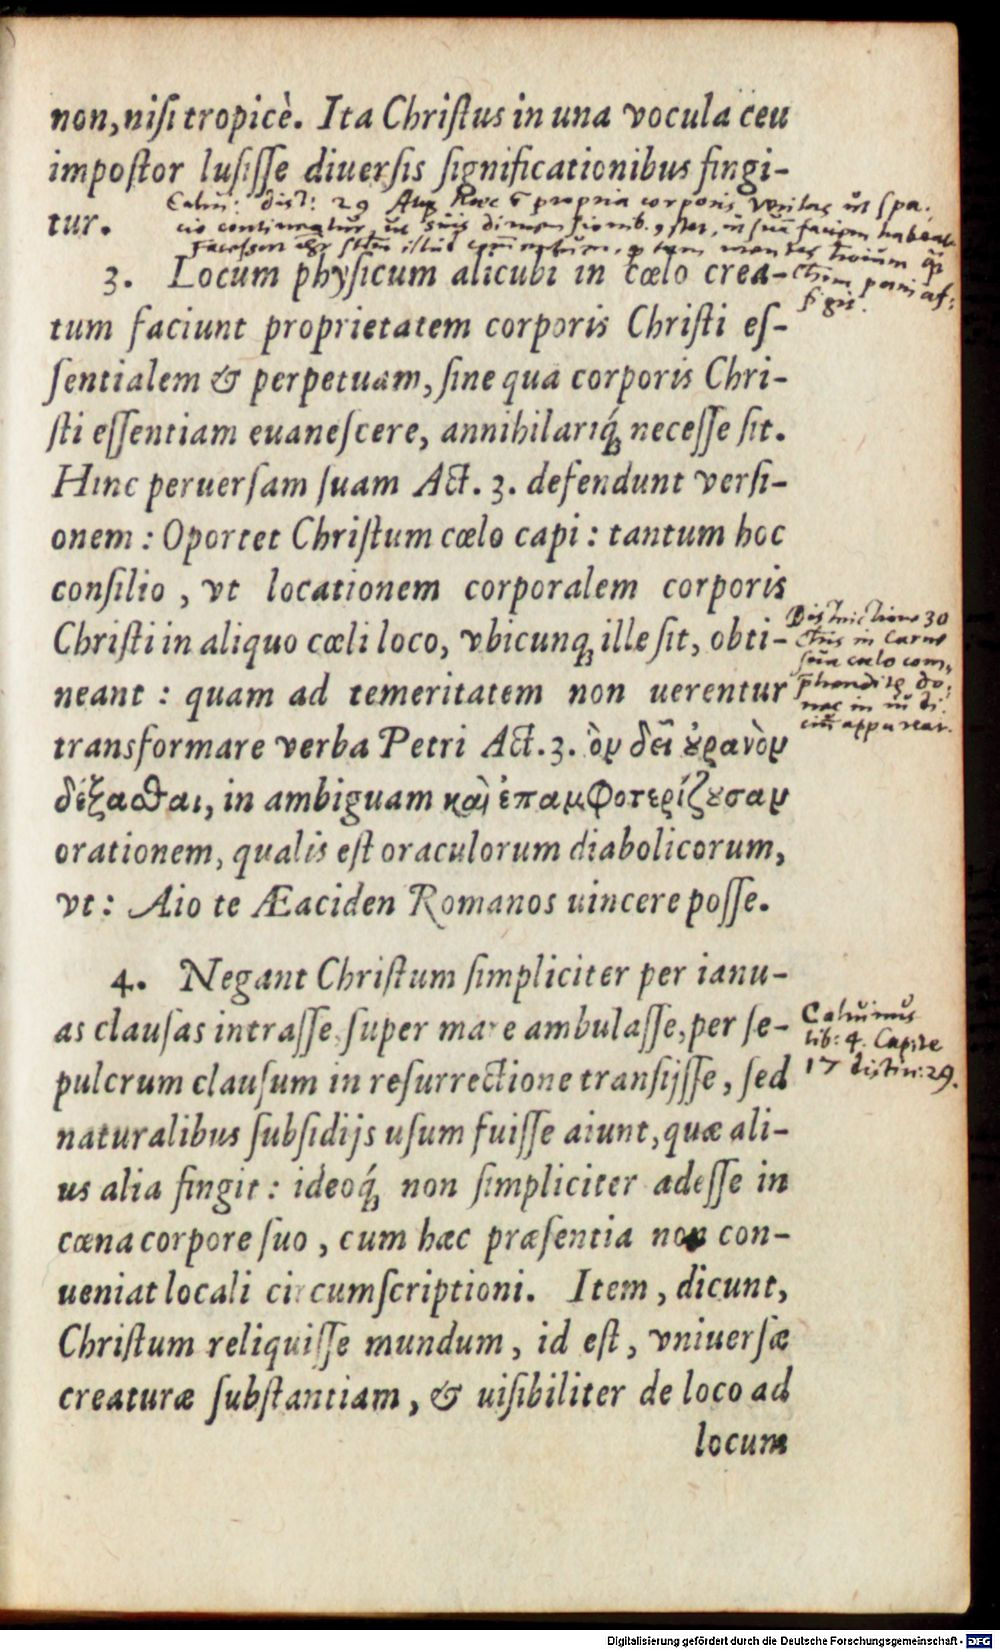 non, nisi tropicè. Ita Christus in una vocula ceu
impostor lusisse diuersis significationibus fingi-
tur.
Caluin: dist: 29 Atq haec ē propria corporis veritas ut spa-
cio contineatur, ut suis dimensionib. ꝯstet, ut suā faciem habeat
3. Locum physicum alicubi in cœlo crea-
tum faciunt proprietatem corporis Christi es-
sentialem & perpetuam, sine qua corporis Chri-
sti essentiam euanescere, annihilariq́; necesse sit.
Hinc peruersam suam Act. 3. defendunt versi-
onem: Oportet Christum cœlo capi: tantum hoc
consilio, vt locationem corporalem corporis
Christi in aliquo cœli loco, vbicunq; ille sit, obti-
neant: quam ad temeritatem non uerentur
transformare verba Petri Act. 3. ὃν δεῖ ȣ̓ρανὸν
δέξαϑαι, in ambiguam καὶ ἐπαμφοτερίζȣσαν
orationem, qualis est oraculorum diabolicorum,
vt: Aio te Æaciden Romanos uincere posse.
Distinctione 30
in carne
suā cœlo com-
4. Negant Christum simpliciter per ianu-
as clausas intrasse, super mare ambulasse, per se-
pulcrum clausum in resurrectione transijsse, sed
naturalibus subsidijs usum fuisse aiunt, quæ ali-
us alia fingit: ideoq́; non simpliciter adesse in
cœna corpore suo, cum hæc præsentia non con-
ueniat locali circumscriptioni. Item, dicunt,
Christum reliquisse mundum, id est, vniuersæ
creaturæ substantiam, & uisibiliter de loco ad
locum
Caluinus
lib: 4. Capite
17 distin: 29.
Digitalisierung gefördert durch die Deutsche Forschungsgemeinschaft - DFG